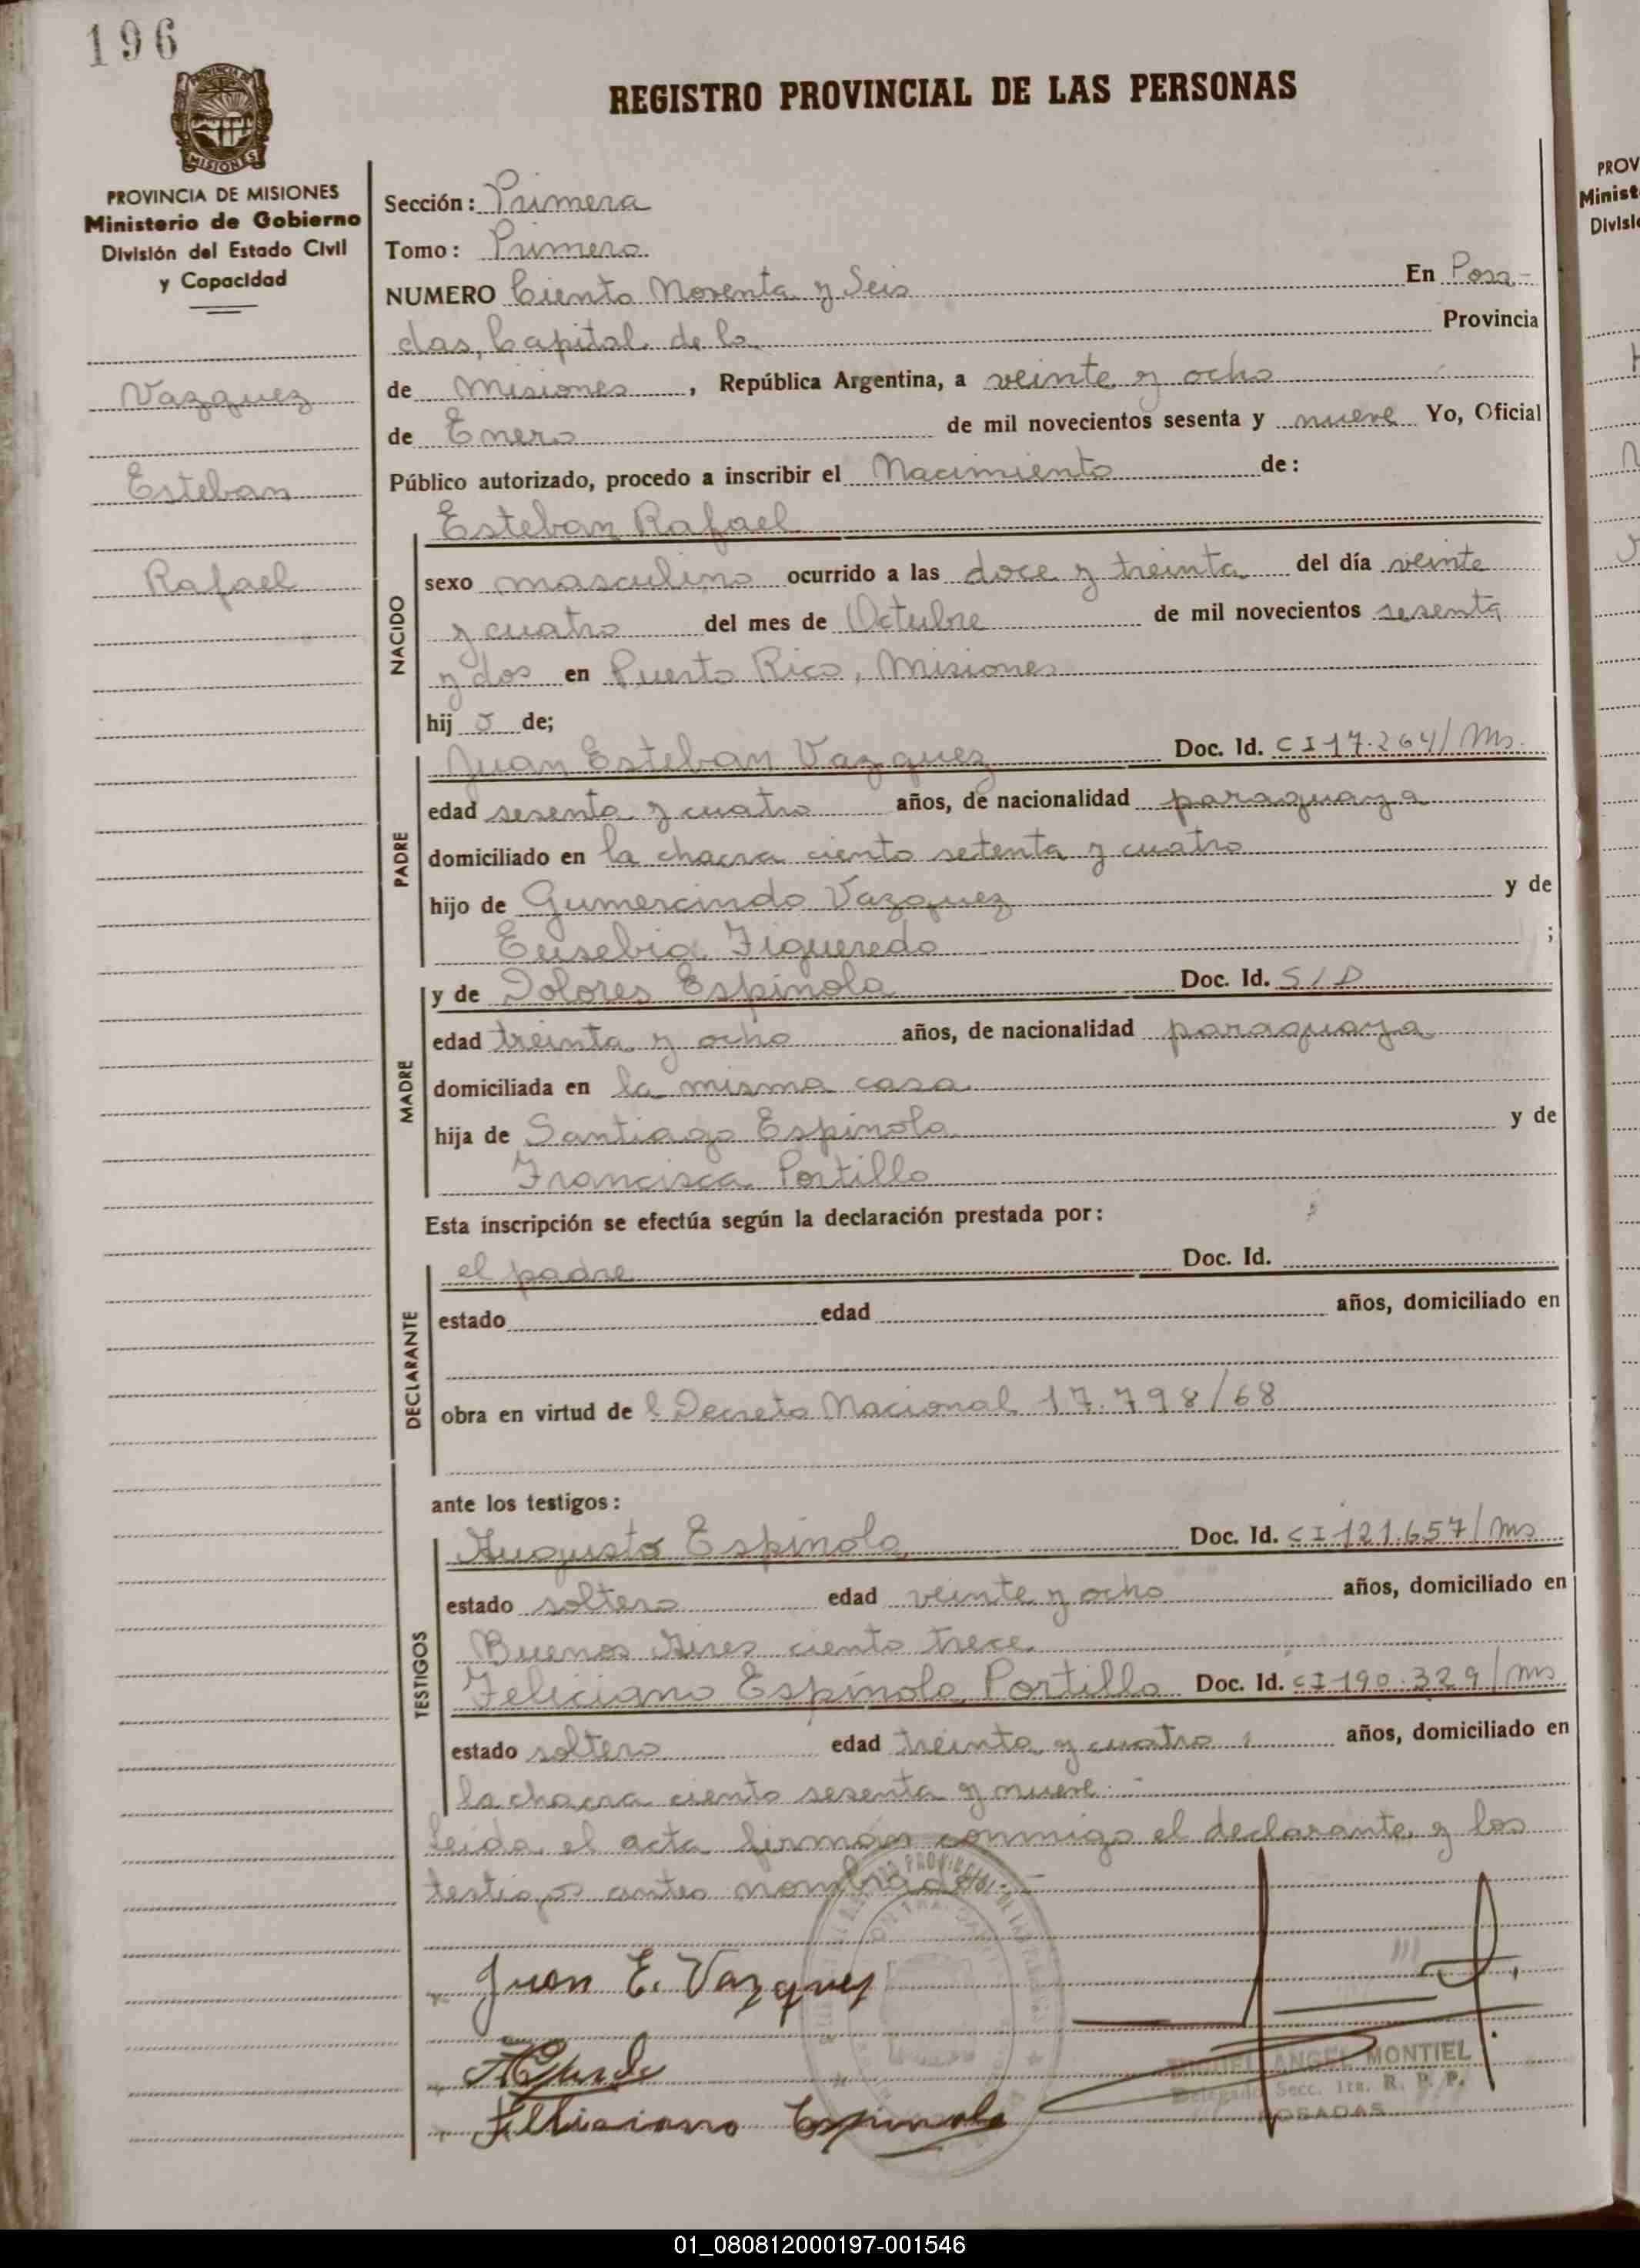 196
REGISTRO PROVINCIAL DE LAS PERSONAS
MISIONES
PROVINCIA DE MISIONES
Ministerio de Gobierno
División del Estado Civil
y Capacidad
Vazquez
Esteban
Rafael
Sección: Primera
Tomo: Primero
NUMERO Ciento Noventa y Seis En Posa-
das, Capital de la Provincia
de Misiones, República Argentina, a veinte y ocho
de Enero de mil novecientos sesenta y nueve Yo, Oficial
Público autorizado, procedo a inscribir el Nacimiento de:
NACIDO
Esteban Rafael
sexo masculino ocurrido a las doce y treinta del día veinte
y cuatro del mes de Octubre de mil novecientos sesenta
y dos en Puerto Rico, Misiones
hij o de;
PADRE
Juan Esteban Vazquez Doc. Id. CI 17.264/Ms.
edad sesenta y cuatro años, de nacionalidad paraguaya
domiciliado en la chacra ciento setenta y cuatro
hijo de Gumercindo Vazquez y de
Eusebia Figueredo ;
MADRE
y de Dolores Espínola Doc. Id. S/D
edad treinta y ocho años, de nacionalidad paraguaya
domiciliada en la misma casa
hija de Santiago Espínola y de
Francisca Portillo
Esta inscripción se efectúa según la declaración prestada por:
DECLARANTE
el padre Doc. Id.
estado edad años, domiciliado en
obra en virtud de l Decreto Nacional 17.798/68
ante los testigos:
TESTIGOS
Augusto Espínola Doc. Id. CI 121.657/Ms
estado soltero edad veinte y ocho años, domiciliado en
Buenos Aires ciento trece
Feliciano Espínola Portillo Doc. Id. CI 190.329/Ms
estado soltero edad treinta y cuatro años, domiciliado en
la chacra ciento sesenta y nueve.
Leida el acta firman conmigo el declarante y los
testigos antes nombrados.-
Juan E. Vazquez
Feliciano Espinola
MIGUEL ANGEL MONTIEL
Delegado Secc. 1ra. R. P. P.
POSADAS
PROV
Minist
Divisi
01_080812000197-001546